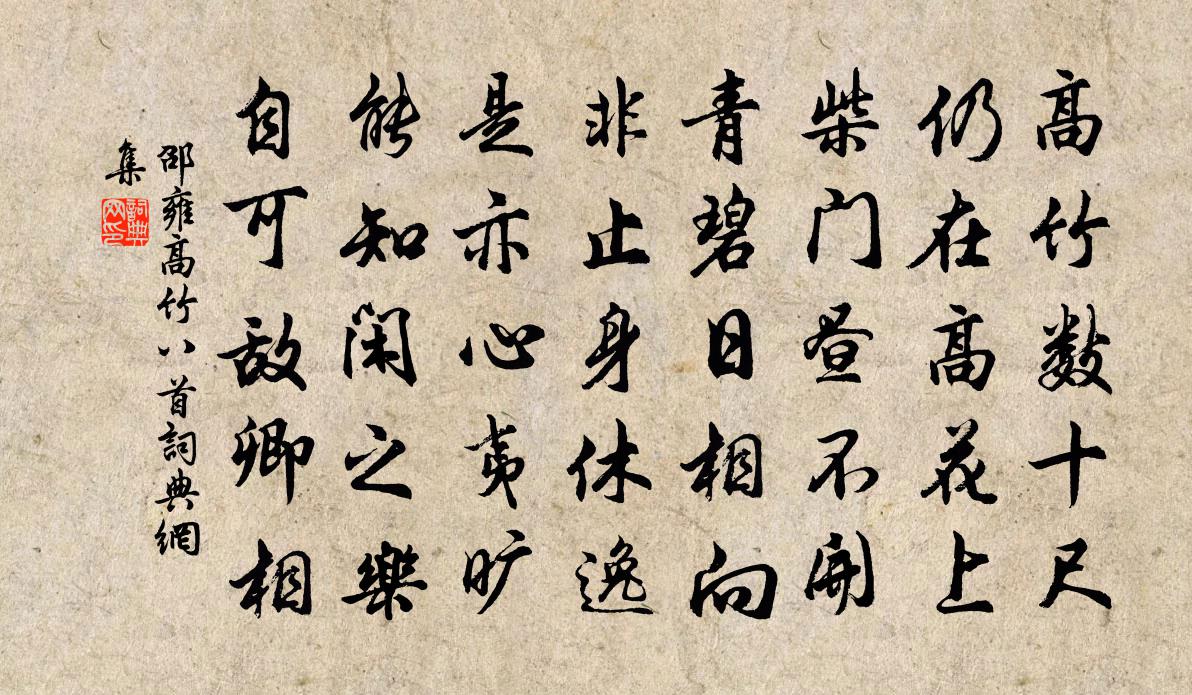 高竹数十尺
仍在高花上
柴门昼不開
青碧日相向
非止身休逸
是亦心夷旷
能知閑之樂
自可敌卿相
邵雍高竹八首詞典網
集
詞典
网印